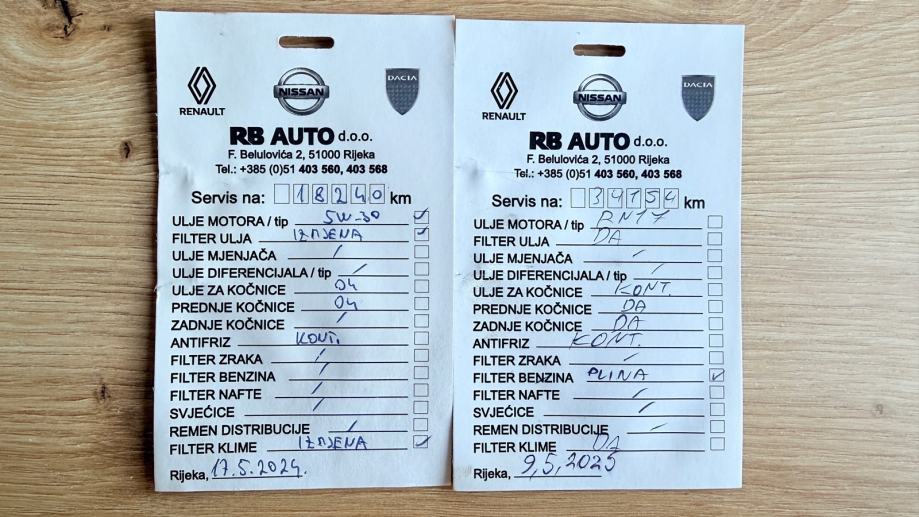 RENAULT
NISSAN
DACIA
RB AUTO d.o.o.
F. Belulovića 2, 51000 Rijeka
Tel.: +385 (0)51 403 560, 403 568
Servis na: 18240 km
ULJE MOTORA / tip 5W-30 ✓
FILTER ULJA IZMJENA ✓
ULJE MJENJAČA /
ULJE DIFERENCIJALA / tip /
ULJE ZA KOČNICE 04
PREDNJE KOČNICE 04
ZADNJE KOČNICE /
ANTIFRIZ KONT.
FILTER ZRAKA /
FILTER BENZINA /
FILTER NAFTE /
SVJEĆICE /
REMEN DISTRIBUCIJE /
FILTER KLIME IZMJENA ✓
Rijeka, 17.5.2024.
RENAULT
NISSAN
DACIA
RB AUTO d.o.o.
F. Belulovića 2, 51000 Rijeka
Tel.: +385 (0)51 403 560, 403 568
Servis na: 34154 km
ULJE MOTORA / tip RN17
FILTER ULJA DA
ULJE MJENJAČA /
ULJE DIFERENCIJALA / tip /
ULJE ZA KOČNICE KONT.
PREDNJE KOČNICE DA
ZADNJE KOČNICE DA
ANTIFRIZ KONT.
FILTER ZRAKA /
FILTER BENZINA PLINA ✓
FILTER NAFTE /
SVJEĆICE /
REMEN DISTRIBUCIJE /
FILTER KLIME DA
Rijeka, 9,5,2025